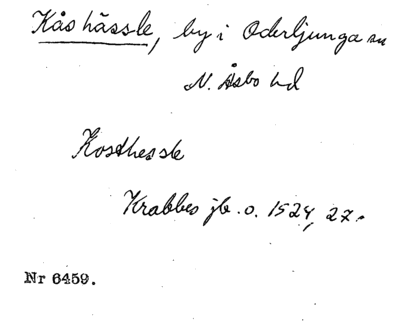 Kåshässle, by i Oderljunga sn
N. Åsbo hd
Kosthessle
Krabbes jb. o. 1524, 27.
Nr 6459.